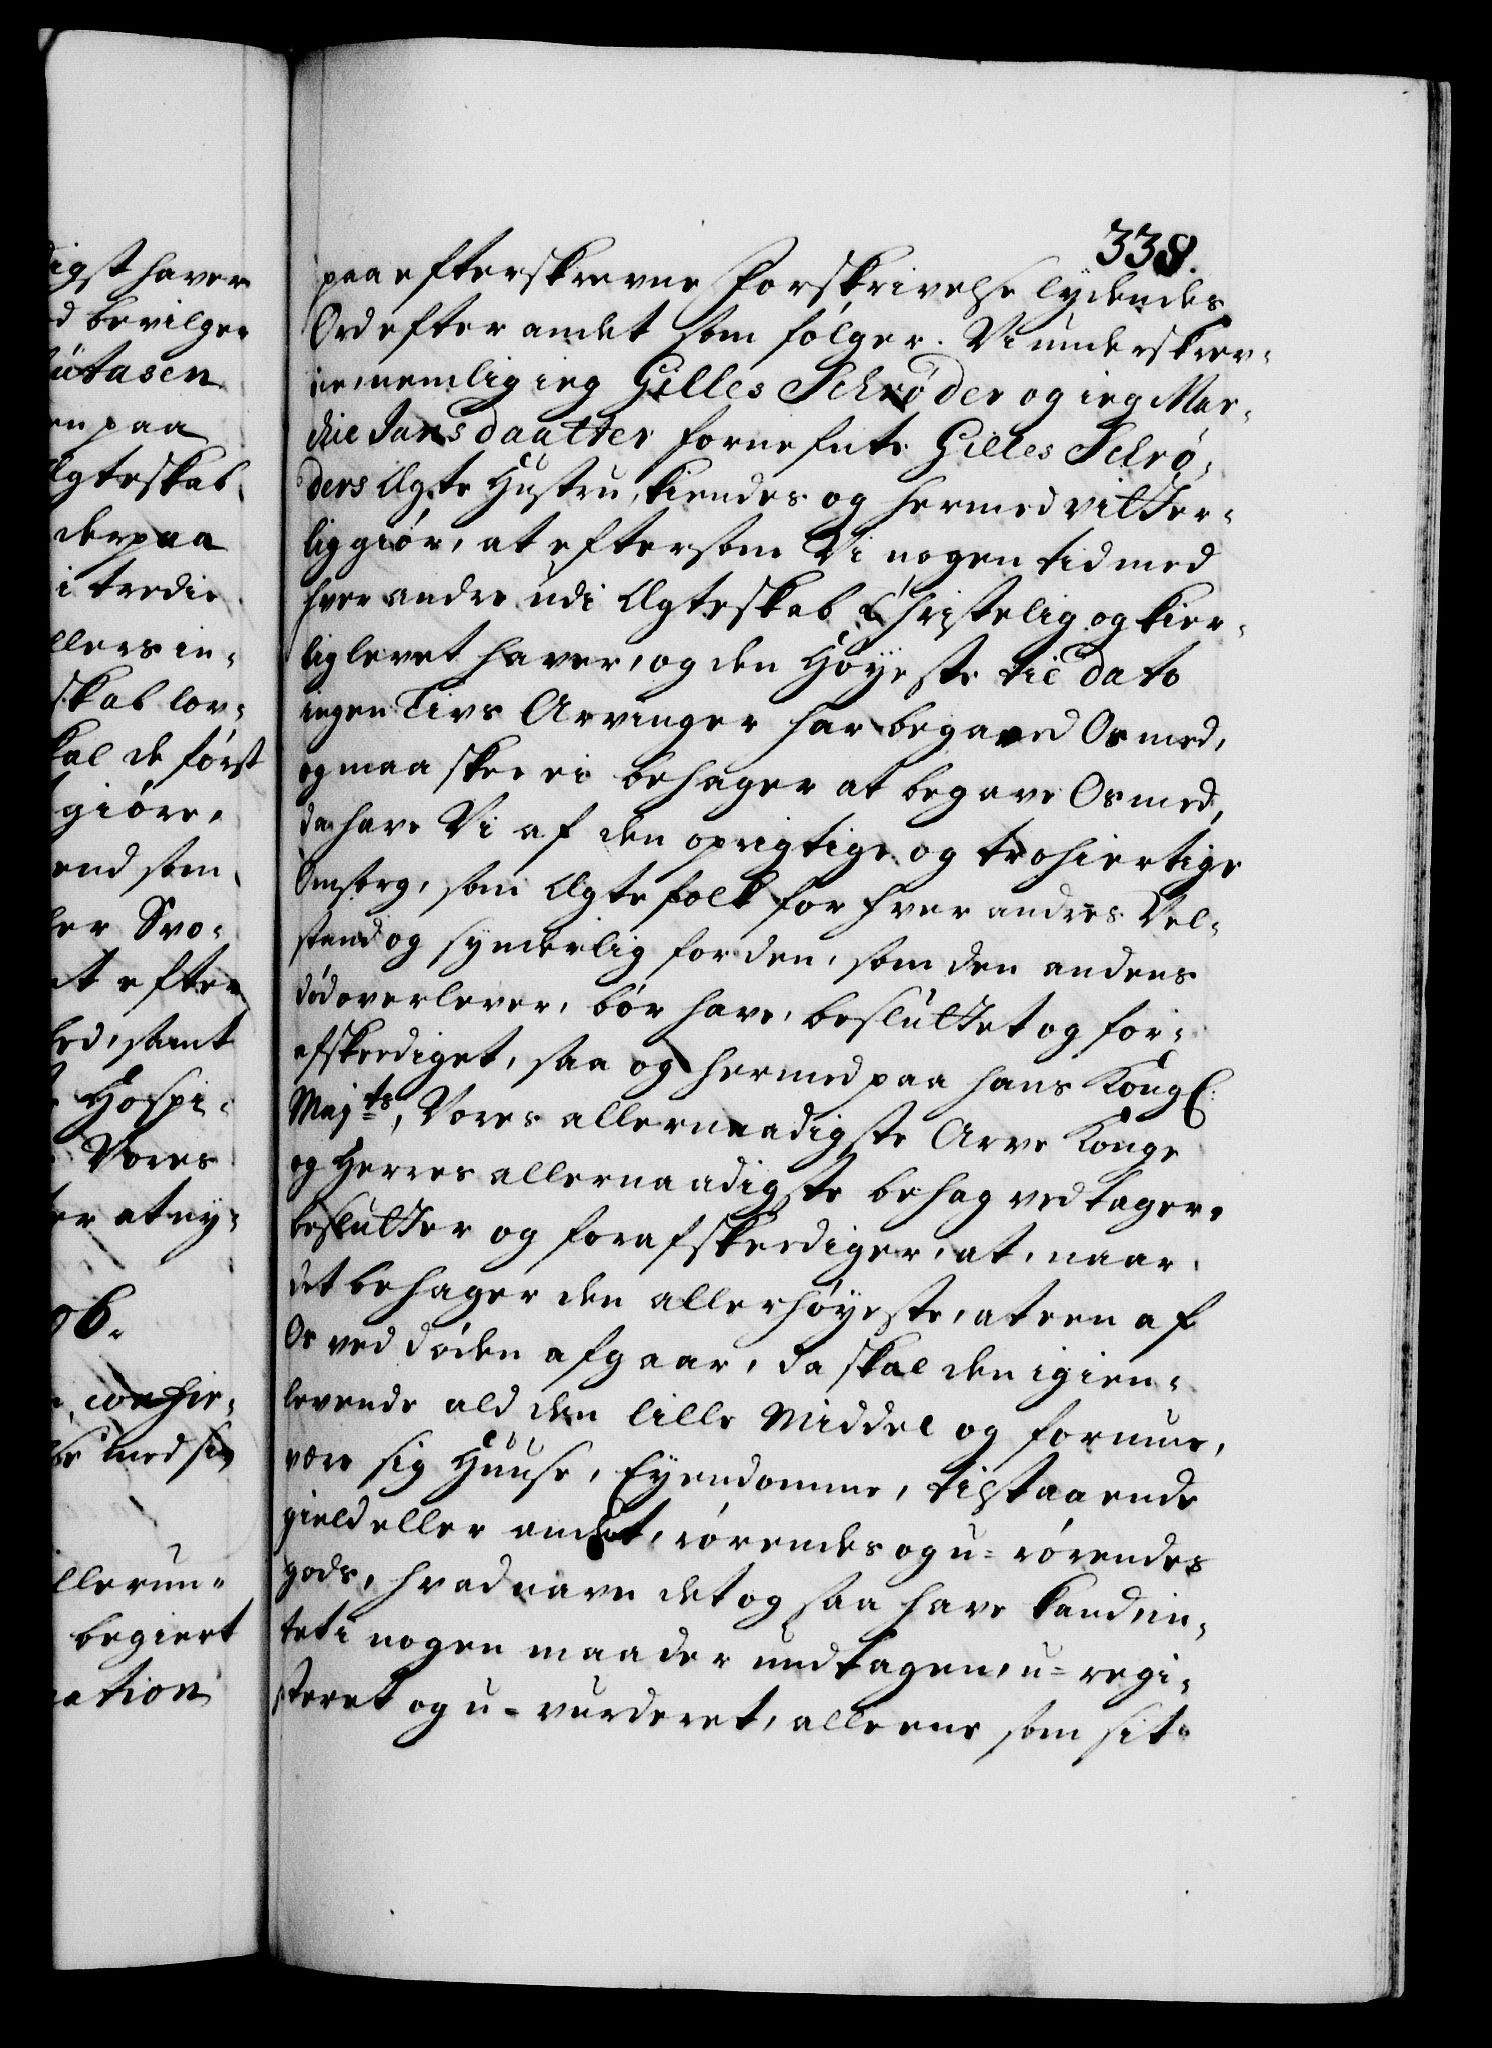 338.
paa efterskrevne Forskrivelse lydendes
Ord efter andet som følger. Vi underskrev-
ne, nemlig ieg Gilles Schrøder og ieg Mar-
che Jansdaatter forne fnte Gilles Schrø-
ders Ægte Hustru, kiendes og hermed vitter-
lig giør, at eftersom Vi nogen tid med
hver andre udi Ægteskab Christelig og kier-
lig levet haver, og den Høyeste til dato
ingen Livs Arvinger har begaved Os med,
og maa skee ei behager at begave Os med,
da have Vi af den oprigtige og trohiertige
Omsorg, som Ægtefolk for hver andres Vel-
stand og synderlig for den, som den andens
død overlever, bør have, besluttet og for-
afskeediget, saa og hermed paa hans Kongl:
Majts, Vores allernaadigste Arve Konge
og Herres allernaadigste behag vedtager,
beslutter og forafskeediger, at, naar
det behager den allerhøyeste, at een af
Os ved døden afgaar, da skal den igien-
levende ald den lille Middel og formue,
være sig Huuse, Eyendomme, tilstaaende
gield eller andet, rørendes og u-rørendes
gods, hvad navn det og saa have kand, in-
tet i nogen maader undtagen, u-regi-
streret og u-vurderet, alleene som sit
digst haver
d bevilger
ütasen
en paa
Ægteskab
derpaa
i tredie
llers in-
skab lov-
kal de først
giøre,
end som
ler Svo-
t efter
ed, samt
Hospi-
Vores
er at ny-
06.
confir-
se med sin
llerun-
begiert
ation